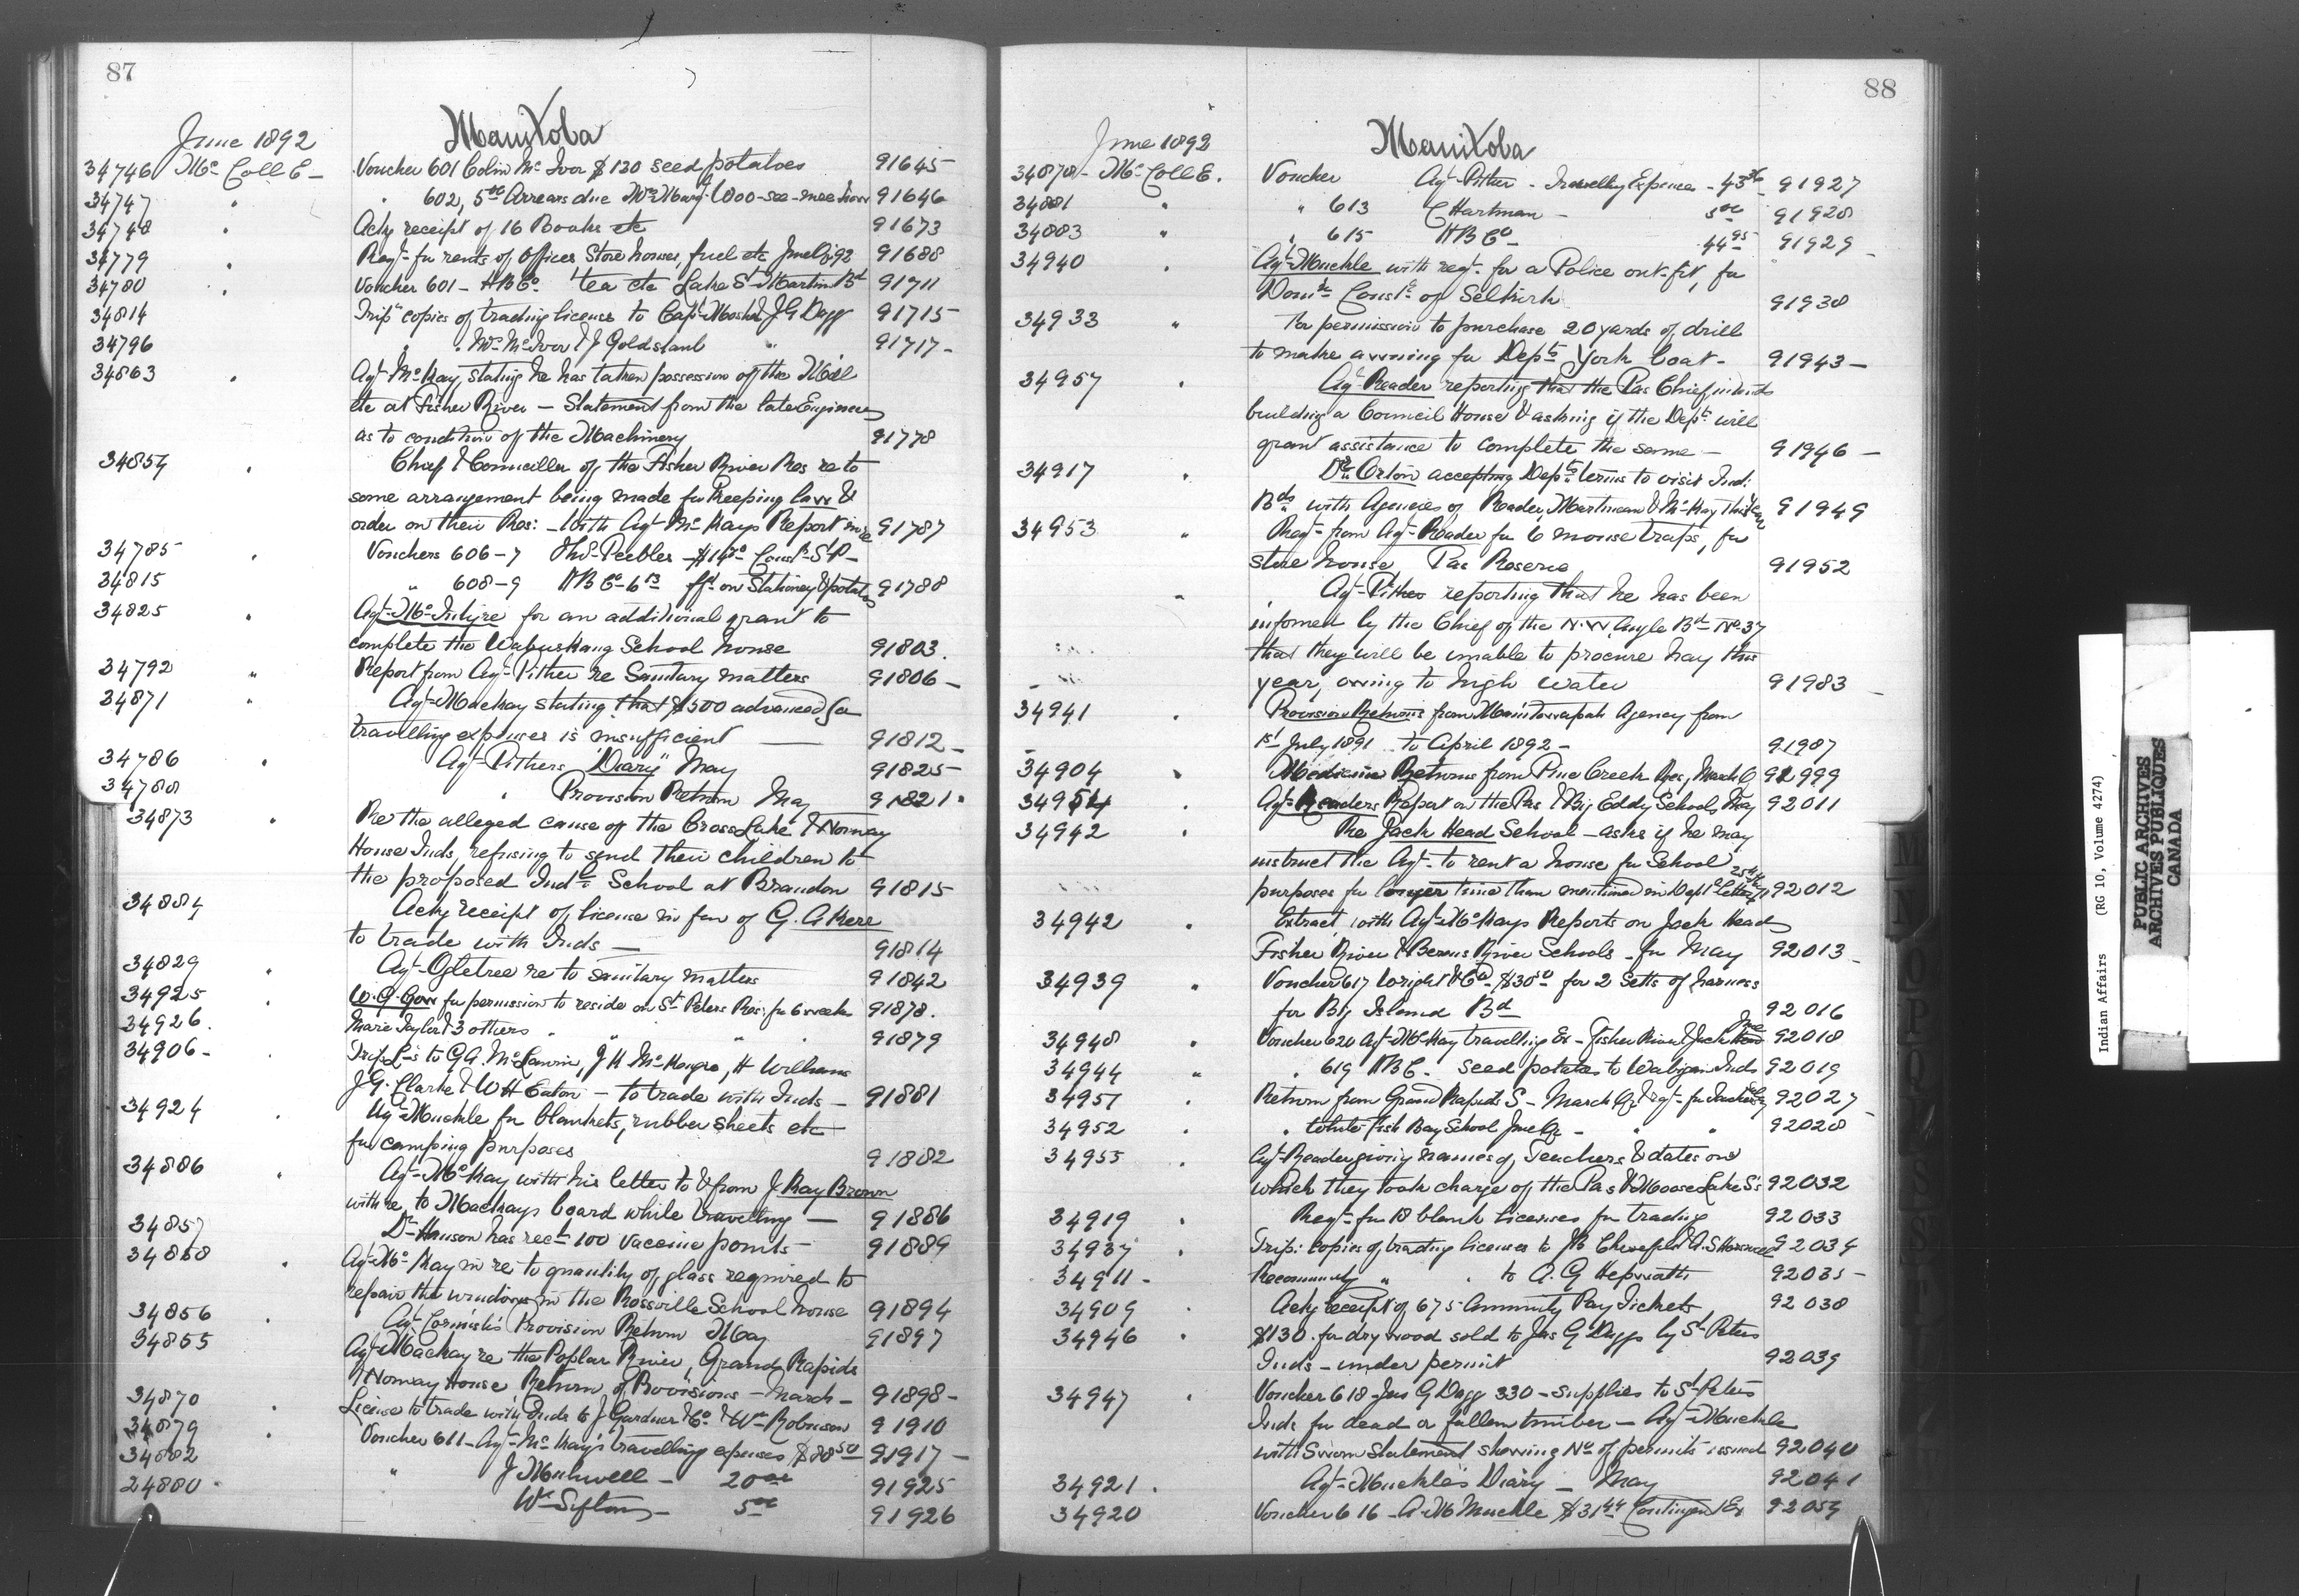 87
Manitoba
June 1892
34746 Mc Coll E - Voucher 601 Colin McIvor $130 seed potatoes 91645
34747 " " 602, 5.00 Arrears due Wm 91646
34748 " Ackg receipt of 16 Books etc 91673
34779 " Reqt for rents of offices Store houses, fuel etc June Qr 92 91688
34780 " Voucher 601 - HBCo tea etc Lake St Martin Bd 91711
34814 Trip copies of trading license to Capt & J G Dagg 91715
34796 " Wm McIvor & J Goldstaub " 91717 -
34863 " Agt McKay, stating he has taken possession of the Mill
etc at Fisher River - Statement from the late Engineer
as to condition of the Machinery 91778
34854 " Chief & Councillor of the Fisher River Res re to
some arrangement being made for keeping law &
order on their Res: - With Agt McKays Report 91787
34785 " Vouchers 606-7 Thos Peebles - Const St P -
34815 " 608-9 HBCo 6.13 on Stationery & potatoes 91788
34825 " Agt McIntyre for an additional grant to
complete the Wabuskang School house 91803.
34792 " Report from Agt Pither re Sanitary matters 91806 -
34871 " Agt Mackay stating that $500 advanced for
travelling expenses is insufficient 91812 -
34786 " Agt Pithers "Diary" May 91825 -
34788 " Provision Return May 91821
34873 " Re the alleged cause of the Cross Lake & Norway
House Inds, refusing to send their children to
the proposed Indl School at Brandon 91815
34884 Ackg receipt of license in fav of G. A Kerr
to trade with Inds - 91814
34829 " Agt Ogletree re to sanitary matters 91842
34925 " W. G. Gow for permission to reside on St Peters Res: for 6 weeks 91878.
34926. Marie Taylor & 3 others " " " 91879
34906 - Trip Ls to G A. McLawrin, J H McKaigre, H Williams
J. G. Clarke & W H Eaton - to trade with Inds - 91881
34924 " Agt Muckle for blankets, rubber sheets etc
for camping purposes 91882
34886 " Agt McKay with his letter to & from J Ray Brown
with re to Mackays board while travelling - 91886
34857 Dr Hanson has rect 100 vaccine points - 91889
34858 " Agt McKay in re to quantity of glass required to
repair the windows in the Rossville School house 91894
34856 " Agt Cornish's Provision Return May 91897
34855 Agt Mackay re the Poplar River, Grand Rapids
& Norway House Return of Provisions - March - 91898 -
34870 " License to trade with Inds to J Gardner & Co & Wm Robinson 91910
34879 " Voucher 611 - Agt McKay's travelling expenses $88.50 91917 -
34882 " J - 20.00 91925
24880 " Wm Sifton - 5.00 91926
88
Manitoba
June 1892
34878 - Mc Coll E. Voucher Agt Pither - Travelling Expenses - 43.36 91927
34881 " " 613 C Hartman - 5.00 91928
34883 " " 615 HBCo - 44.95 91929
34940 " Agt Muckle with reqt for a Police out-fit, for
Domn Conste of Selkirk 91938
34933 " For permission to purchase 20 yards of drill
to make awning for Depts York boat - 91943 -
34957 " Agt Reader reporting that the Pas Chief intends
building a Council House & asking if the Dept will
grant assistance to complete the same - 91946 -
34917 " Dr Orton accepting Depts terms to visit Ind:
Bds with Agencies of Reader, Martineau & McKay this year 91949
34953 " Reqt from Agt Reader for 6 mouse traps, for
store house, Pas Reserve 91952
" Agt Pither reporting that he has been
informed by the Chief of the N.W Angle Bd No 37
that they will be unable to procure hay this
year, owing to high water 91983
34941 " Provision Returns from Manitowapah Agency from
1st July 1891 to April 1892 - 91987
34904 " Medicine Returns from Pine Creek Res, March Q 92999
34954 " Agt Readers Report on the Pas & Big Eddy Schools May 92011
34942 " Re Jack Head School - asks if he may
instruct the Agt to rent a house for School
purposes for longer time than mentioned in Depts letter 25th 92012
34942 " Extract, with Agt McKays Reports on Jack Head
Fisher River & Berens River Schools - for May 92013
34939 " Voucher 617 Wright & Co $30.50 for 2 Setts of harness
for Big Island Bd 92016
34948 " Voucher 620 Agt McKay travelling Ex - Fisher River & Jack Head June 92018
34944 " " 619 HBC. seed potatoes to Wabigon Inds 92019
34951 " Return from Grand Rapids S - March Qr & reqt for Teacher's 92027
34952 " " White Fish Bay School June Qr - " " 92028
34955 " Agt Reader giving names of Teachers & dates on
which they took charge of the Pas & Moose Lake S's 92032
34919 " Reqt for 18 blank licenses for trading 92033
34937 " Trip: copies of trading licenses to & A. S 92034
34911 - Recommending " " to A. G Hepworth 92035 -
34909 " Ackg receipt of 675 Annuity Pay Tickets 92038
34946 " $130. for dry wood sold to Jas G Dagg by St Peters
Inds - under permit 92039
34947 " Voucher 618 - Jas G Dagg 330 - Supplies to St Peters
Inds for dead or fallen timber - Agt Muckle
with Sworn Statement shewing No of permits issued 92040
34921. Agt Muckle's Diary - May 92041
34920 Voucher 616 - A M Muckle $31.44 Contingent Ex 92054
Indian Affairs (RG 10, Volume 4274)
PUBLIC ARCHIVES
ARCHIVES PUBLIQUES
CANADA